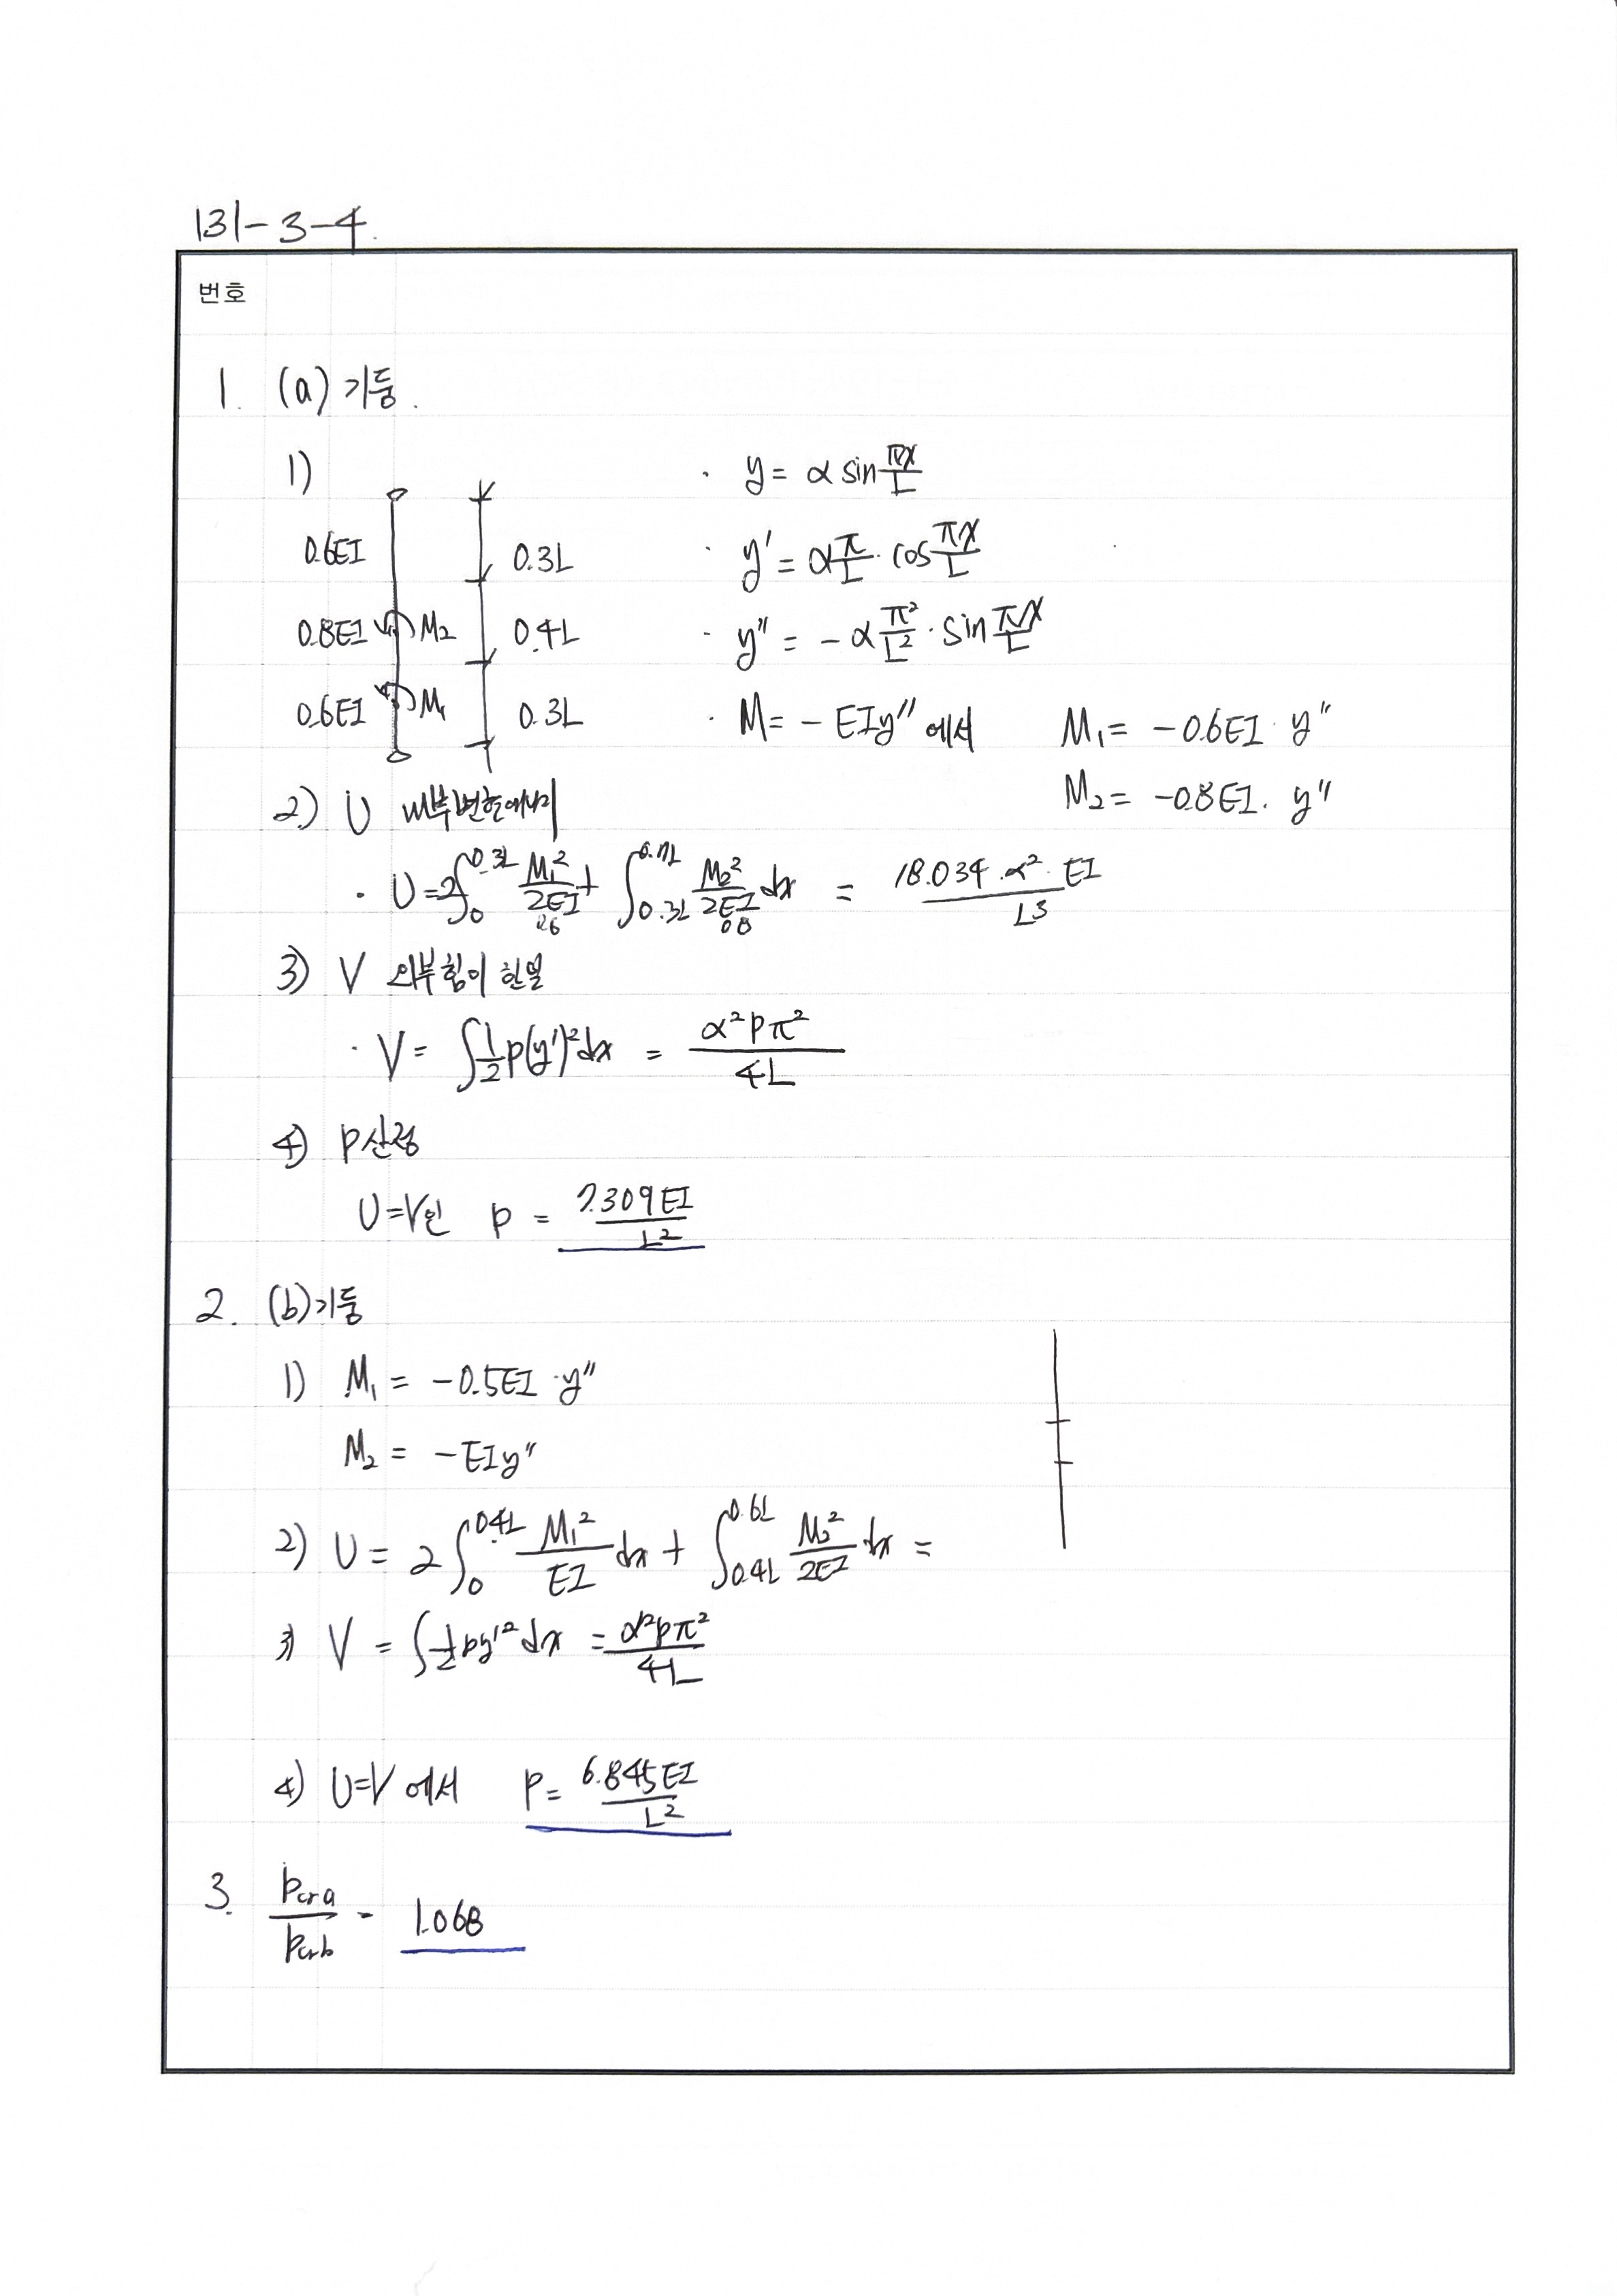 131-3-4.
번호
1. (a) 기둥.
1)
0.6EI 0.3L
0.8EI M₂ 0.4L
0.6EI M₁ 0.3L
· y = α sin πx/L
· y' = α π/L · cos πx/L
· y'' = -α π²/L² · sin πx/L
· M = - EIy'' 에서 M₁ = -0.6EI · y''
M₂ = -0.8EI · y''
2) U 내부변형에너지
· U = 2∫₀^0.3L M₁²/2EI 0.6 + ∫0.3L^0.7L M₂²/2EI 0.8 dx = 18.034·α²·EI/L³
3) V 외부힘이 한일
· V = ∫ 1/2 P(y')² dx = α²Pπ²/4L
4) P산정
U=V인 P = 7.309EI/L²
2. (b)기둥
1) M₁ = -0.5EI · y''
M₂ = -EIy''
2) U = 2∫₀^0.4L M₁²/EI dx + ∫0.4L^0.6L M₂²/2EI dx =
3) V = ∫ 1/2 Py'² dx = α²Pπ²/4L
4) U=V 에서 P = 6.845EI/L²
3. Pcra/Pcrb = 1.068